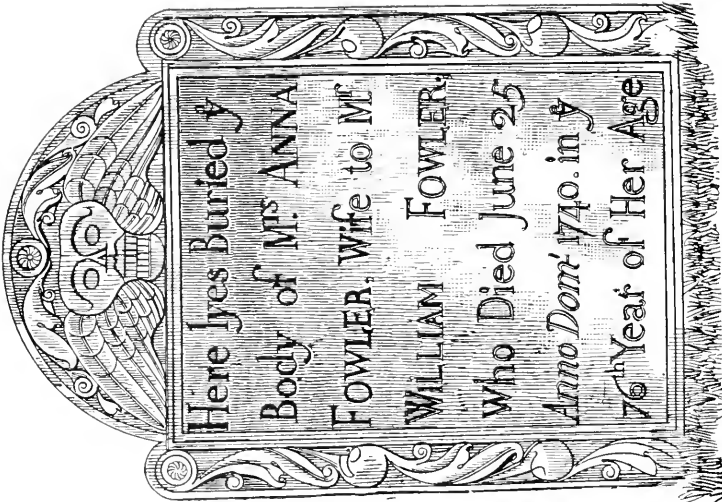 Here lyes Buried yᵉ
Body of Mʳˢ ANNA
FOWLER, Wife to Mʳ
WILLIAM FOWLER,
Who Died June 25
Anno Domⁱ 1740. in yᵉ
76ᵗʰ Year of Her Age